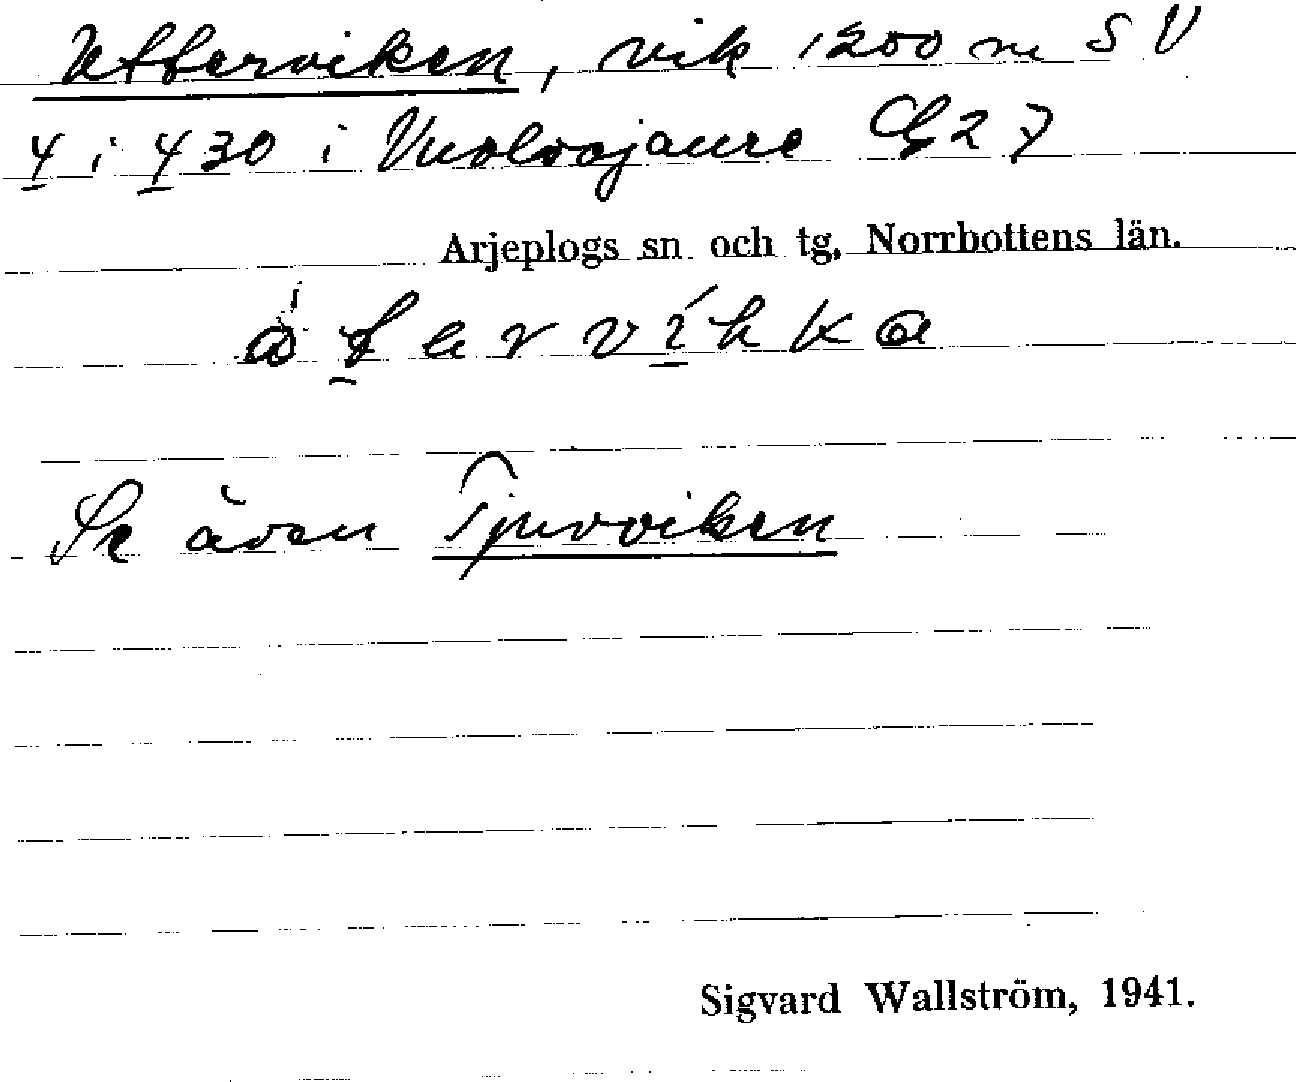 Utterviken, vik 1200 m SV
4 i 430 i Vuolvojaure G27
Arjeplogs sn och tg, Norrbottens län.
Se även Tjuvviken
Sigvard Wallström, 1941.